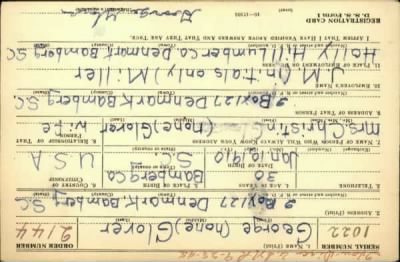 REGISTRATION CARD
SERIAL NUMBER
1022
1. NAME (Print)
George (none) Glover
ORDER NUMBER
2144
2. ADDRESS (Print)
2 Box 127 Denmark, Bamberg S.C.
3. TELEPHONE
4. AGE IN YEARS
30
DATE OF BIRTH
Jan. 10, 1910
5. PLACE OF BIRTH
Bamberg Co.
S.C.
6. COUNTRY OF CITIZENSHIP
U S A
7. NAME OF PERSON WHO WILL ALWAYS KNOW YOUR ADDRESS
Mrs. Christin (none) Glover
8. RELATIONSHIP OF THAT PERSON
wife
9. ADDRESS OF THAT PERSON
2 Box 127 Denmark, Bamberg S.C.
10. EMPLOYER'S NAME
J.M. (initals only) Miller
11. PLACE OF EMPLOYMENT OR BUSINESS
Holly Hill Lumber Co. Denmark Bamberg S.C.
I AFFIRM THAT I HAVE VERIFIED ABOVE ANSWERS AND THAT THEY ARE TRUE.
REGISTRATION CARD
D. S. S. FORM 1
George Glover